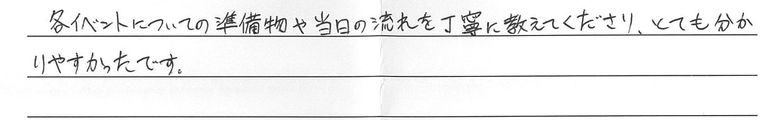 各イベントについての準備物や当日の流れを丁寧に教えてくださり、とても分か
りやすかったです。